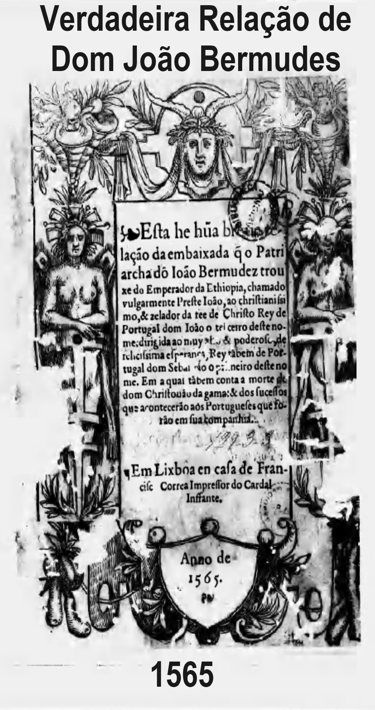 Verdadeira Relação de
Dom João Bermudes
Esta he hũa
lação da embaixada q̃ o Patri
archa dõ Ioão Bermudez trou
xe do Emperador da Ethiopia, chamado
vulgarmente Preste Ioão, ao christianissi
mo, & zelador da fee de Christo Rey de
Portugal dom Ioão o terceiro deste no-
me: dirigida ao muy & poderoso, de
felicissima esperança, Rey tãbem de Por-
tugal dom Sebas o primeiro deste no
me. Em a qual tãbem conta a morte de
dom Christouão da gama: & dos sucessos
que acontecerão aos Portugueses que fo-
rão em sua companhia.
¶Em Lixboa en casa de Fran-
cisc Correa Impressor do Cardal
Inffante.
Anno de
1565.
1565